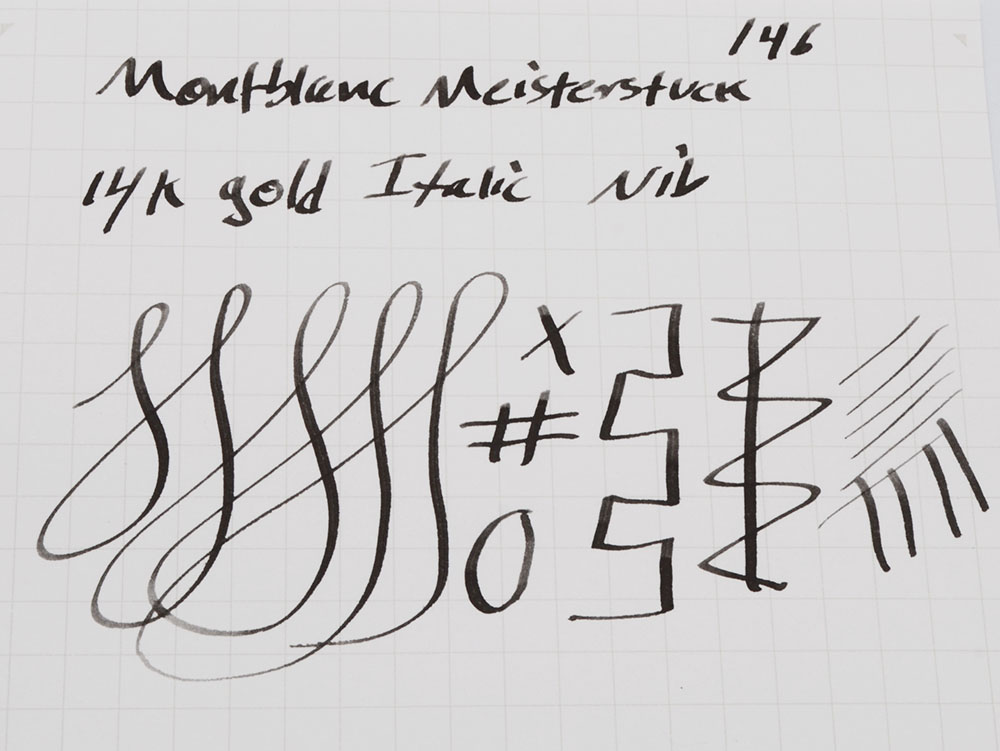 146
Montblanc Meisterstuck
14K gold Italic Nib
X
#
O